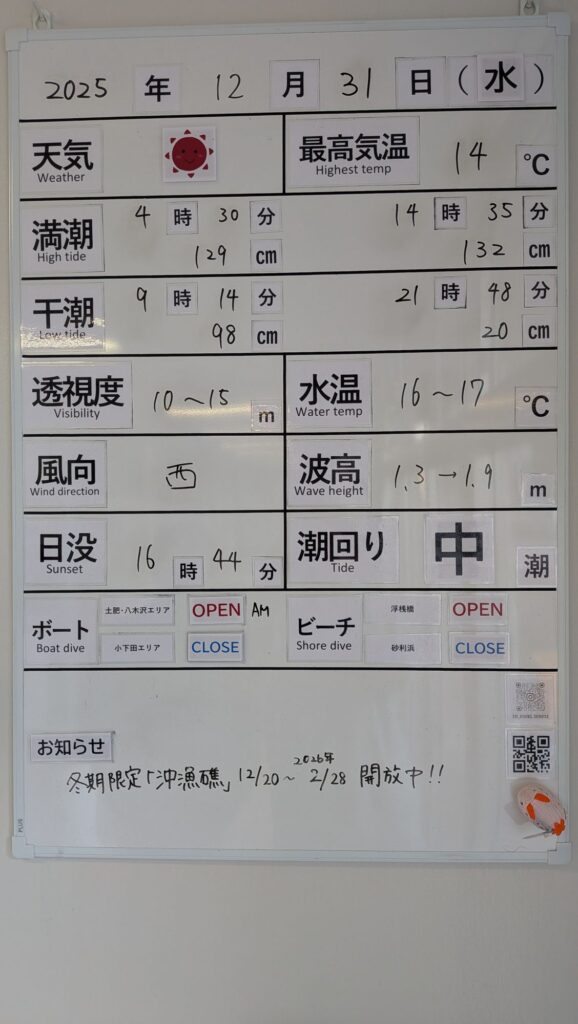 2025 年 12 月 31 日 (水)
天気 最高気温 14 ℃
Weather Highest temp
満潮 4 時 30 分 14 時 35 分
High tide 129 cm 132 cm
干潮 9 時 14 分 21 時 48 分
Low tide 98 cm 20 cm
透視度 10～15 m 水温 16～17 ℃
Visibility Water temp
風向 西 波高 1.3→1.9 m
Wind direction Wave height
日没 16 時 44 分 潮回り 中 潮
Sunset Tide
ボート 土肥・八木沢エリア OPEN AM ビーチ 浮桟橋 OPEN
Boat dive 小下田エリア CLOSE Shore dive 砂利浜 CLOSE
お知らせ
2026年
冬期限定「沖漁礁」12/20～2/28 開放中!!
PLUS